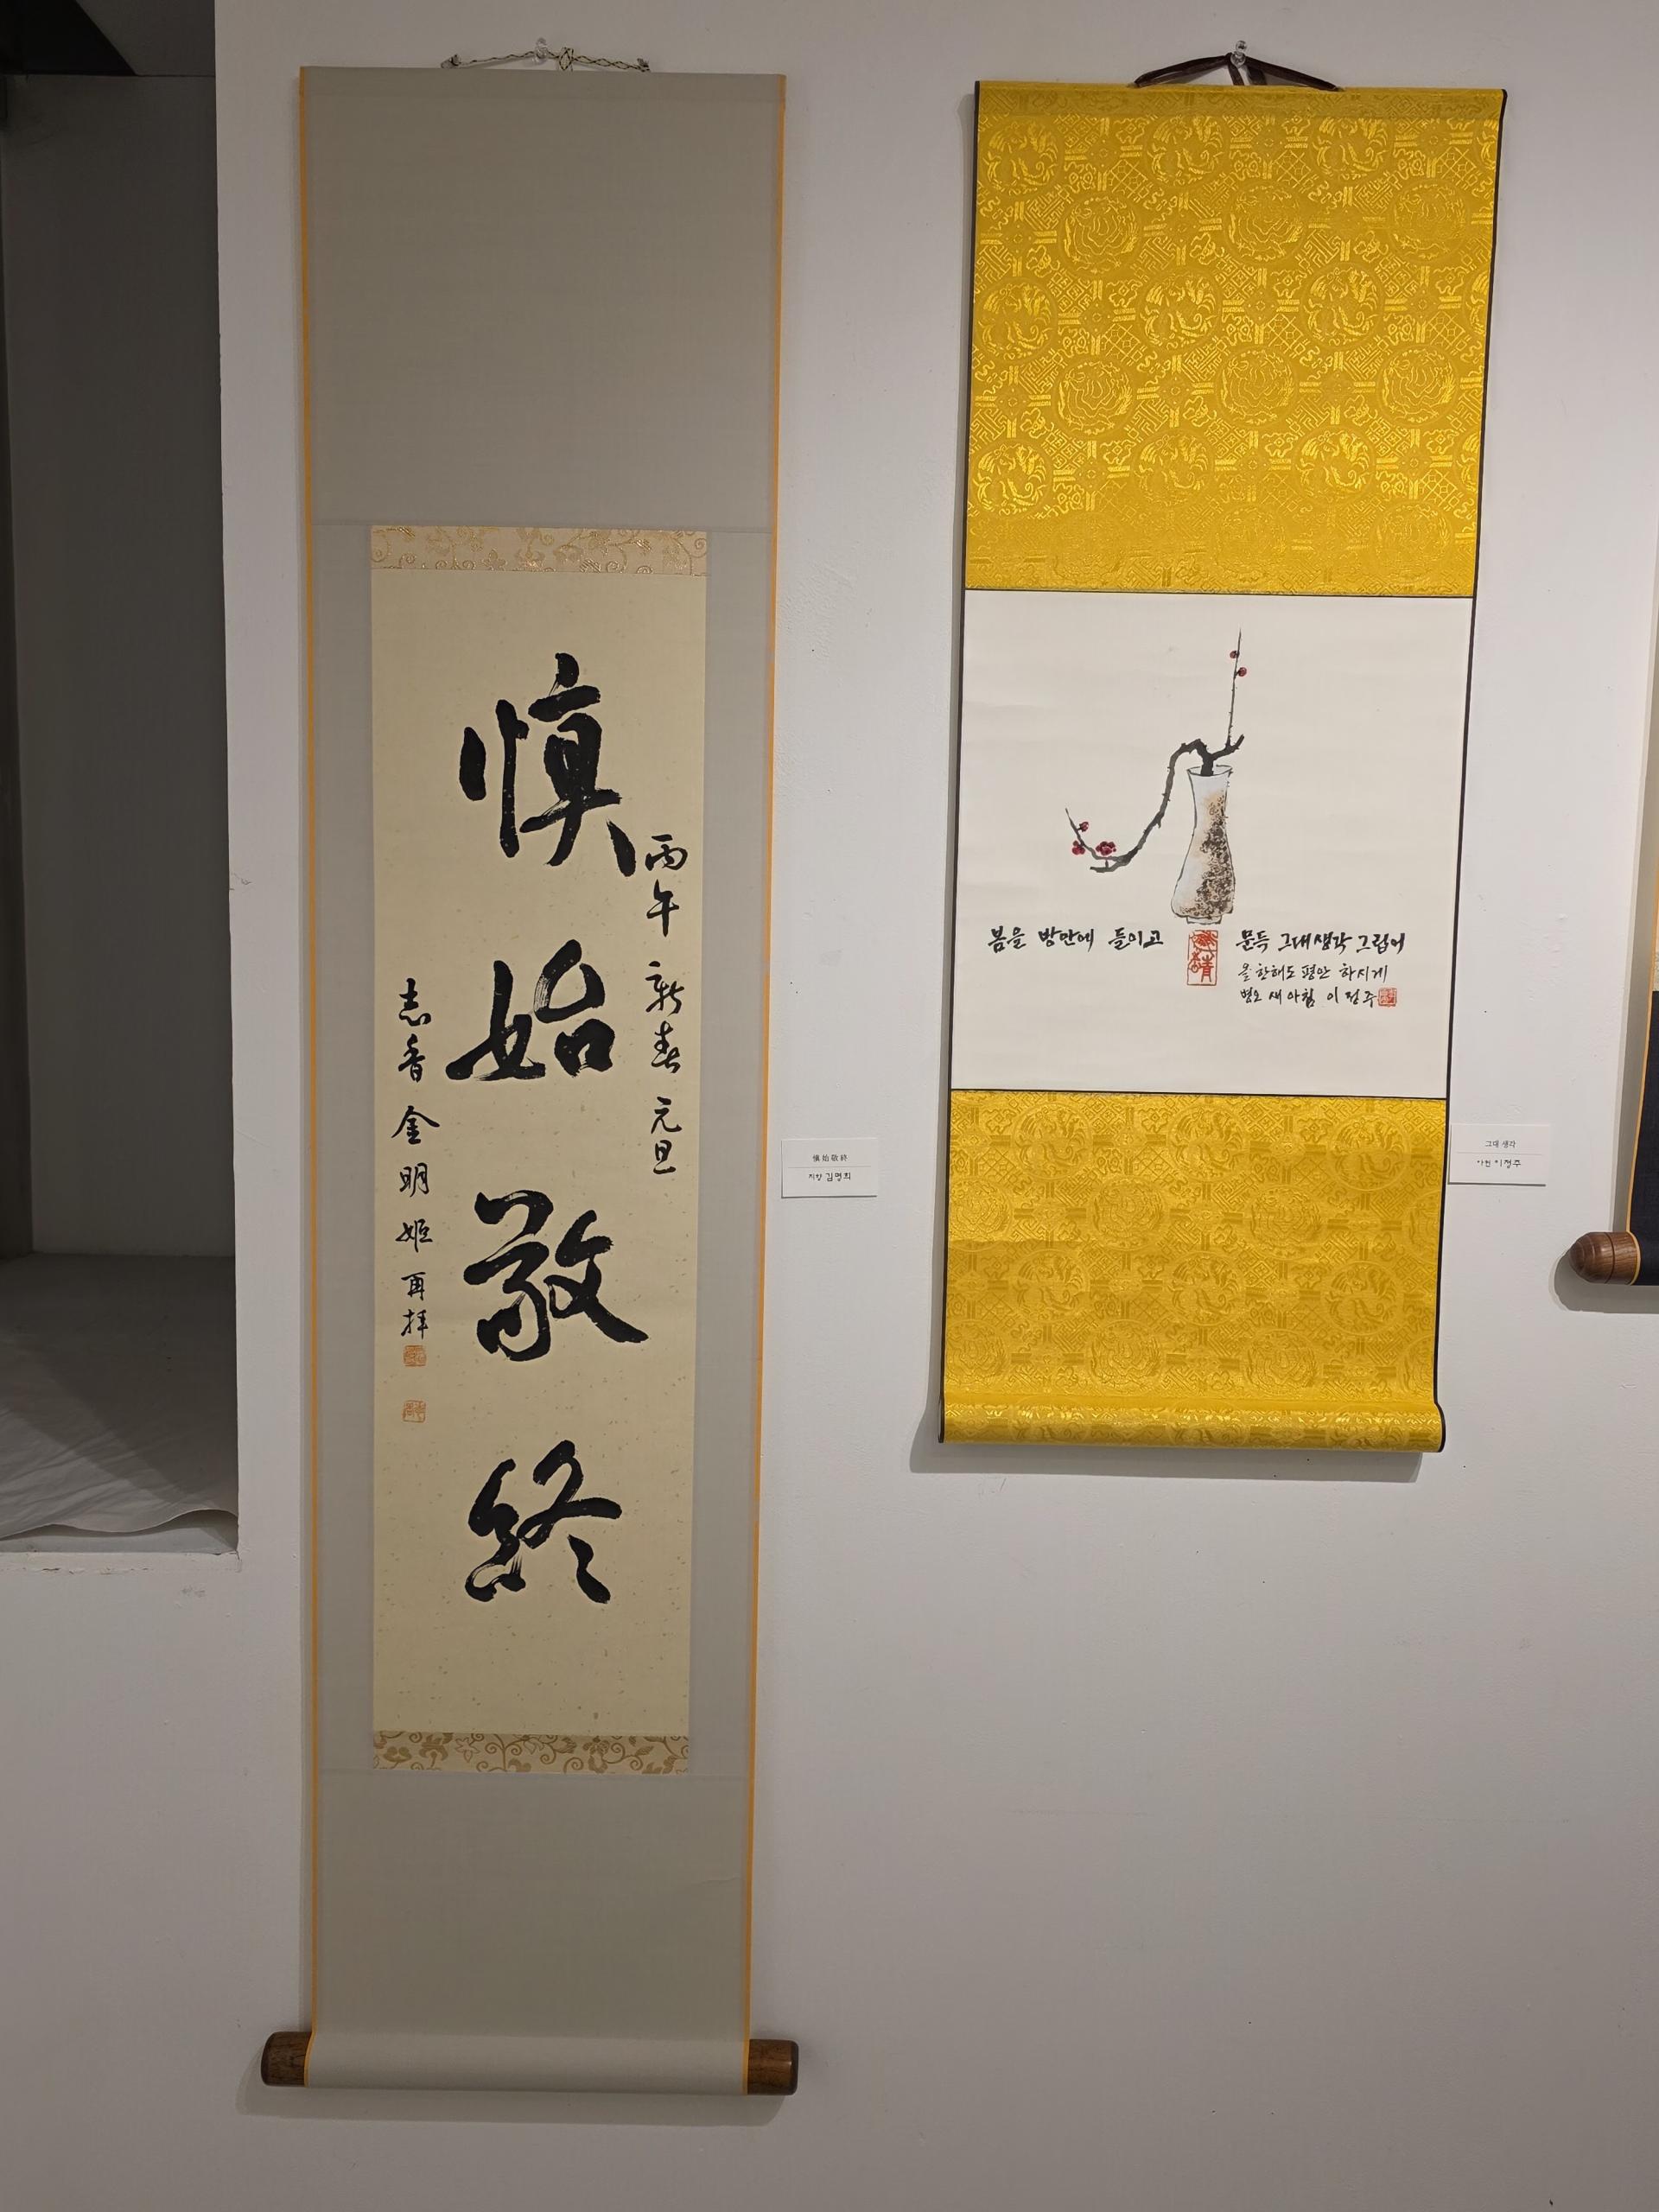 慎始敬終
丙午 新春 元旦
志香 金明姬 再拝
愼始敬終
지향 김명희
봄을 방안에 들이고
문득 그대생각 그립어
올 한해도 평안 하시게
병오 새아침 이정주
그대 생각
이정주